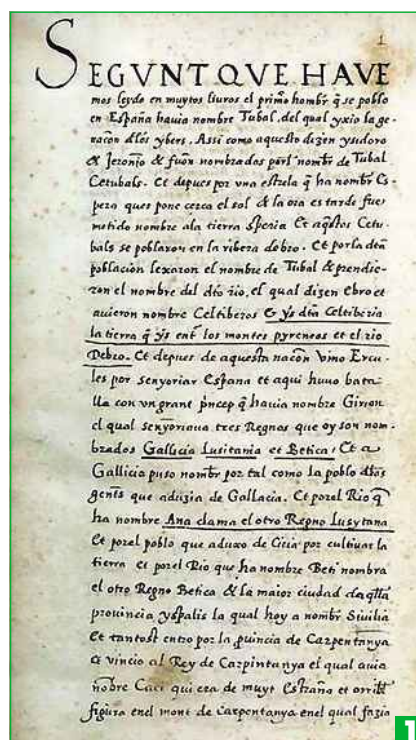 1
SEGVNT QVE HAVE
mos leydo en muytos liuros el primo hombr q̃ se poblo
en España hauia nombre Tubal, del qual yxio la ge-
nacõn dlos ybers. Assi como aquesto dizen ysidoro
& Jeronjo & fuõn nombradas porl nombr̃ de Tubal
Cetubals. Et depues por vna estrela q̃ ha nombr̃ Es
pera ques pone cerca el sol & la ora es tarde fues
metido nombre ala tierra speria Et aq̃stos Cetu-
bals se poblaron en la ribera debro. Et porla dtã
poblacion lexaron el nombre de Tubal & prendie-
ron el nombre del dto rio, el qual dizen Ebro et
auieron nombre Celtiberos & ys dtã Celtiberia
la tierra q̃ ys ent̃ los montes pyreneos et el rio
Debro. Et depues de aquesta nacõn vino Ercu-
les por senyoriar Espana et aqui huuo bata
lla con vn grant pñcep q̃ hauia nombre Girion
el qual senyoriaua tres Regnos que oy son nom-
brados Gallicia Lusitania et Betica, Et a
Gallicia puso nombr̃ por tal como la poblo dlas
gent̃s que aduzia de Gallacia. Et porel Rio q̃
ha nombre Ana clama el otro Regno Lusytana
Et porel poblo que aduxo de Cicia por cultiuar la
tierra et porel Rio que ha nombre Beti nombra
el otro Regno Betica & la maior ciudad daq̃lla
prouincia yspalis la qual hoy a nombr̃ Siuilia
Et tantost entro por la puincia de Carpentanya
& vincio al Rey de Carpintanya el qual auia
nõbre Caci qui era de muyt Estraña et orribl̃
figura enel mont de Carpentanya enel qual fazia
1